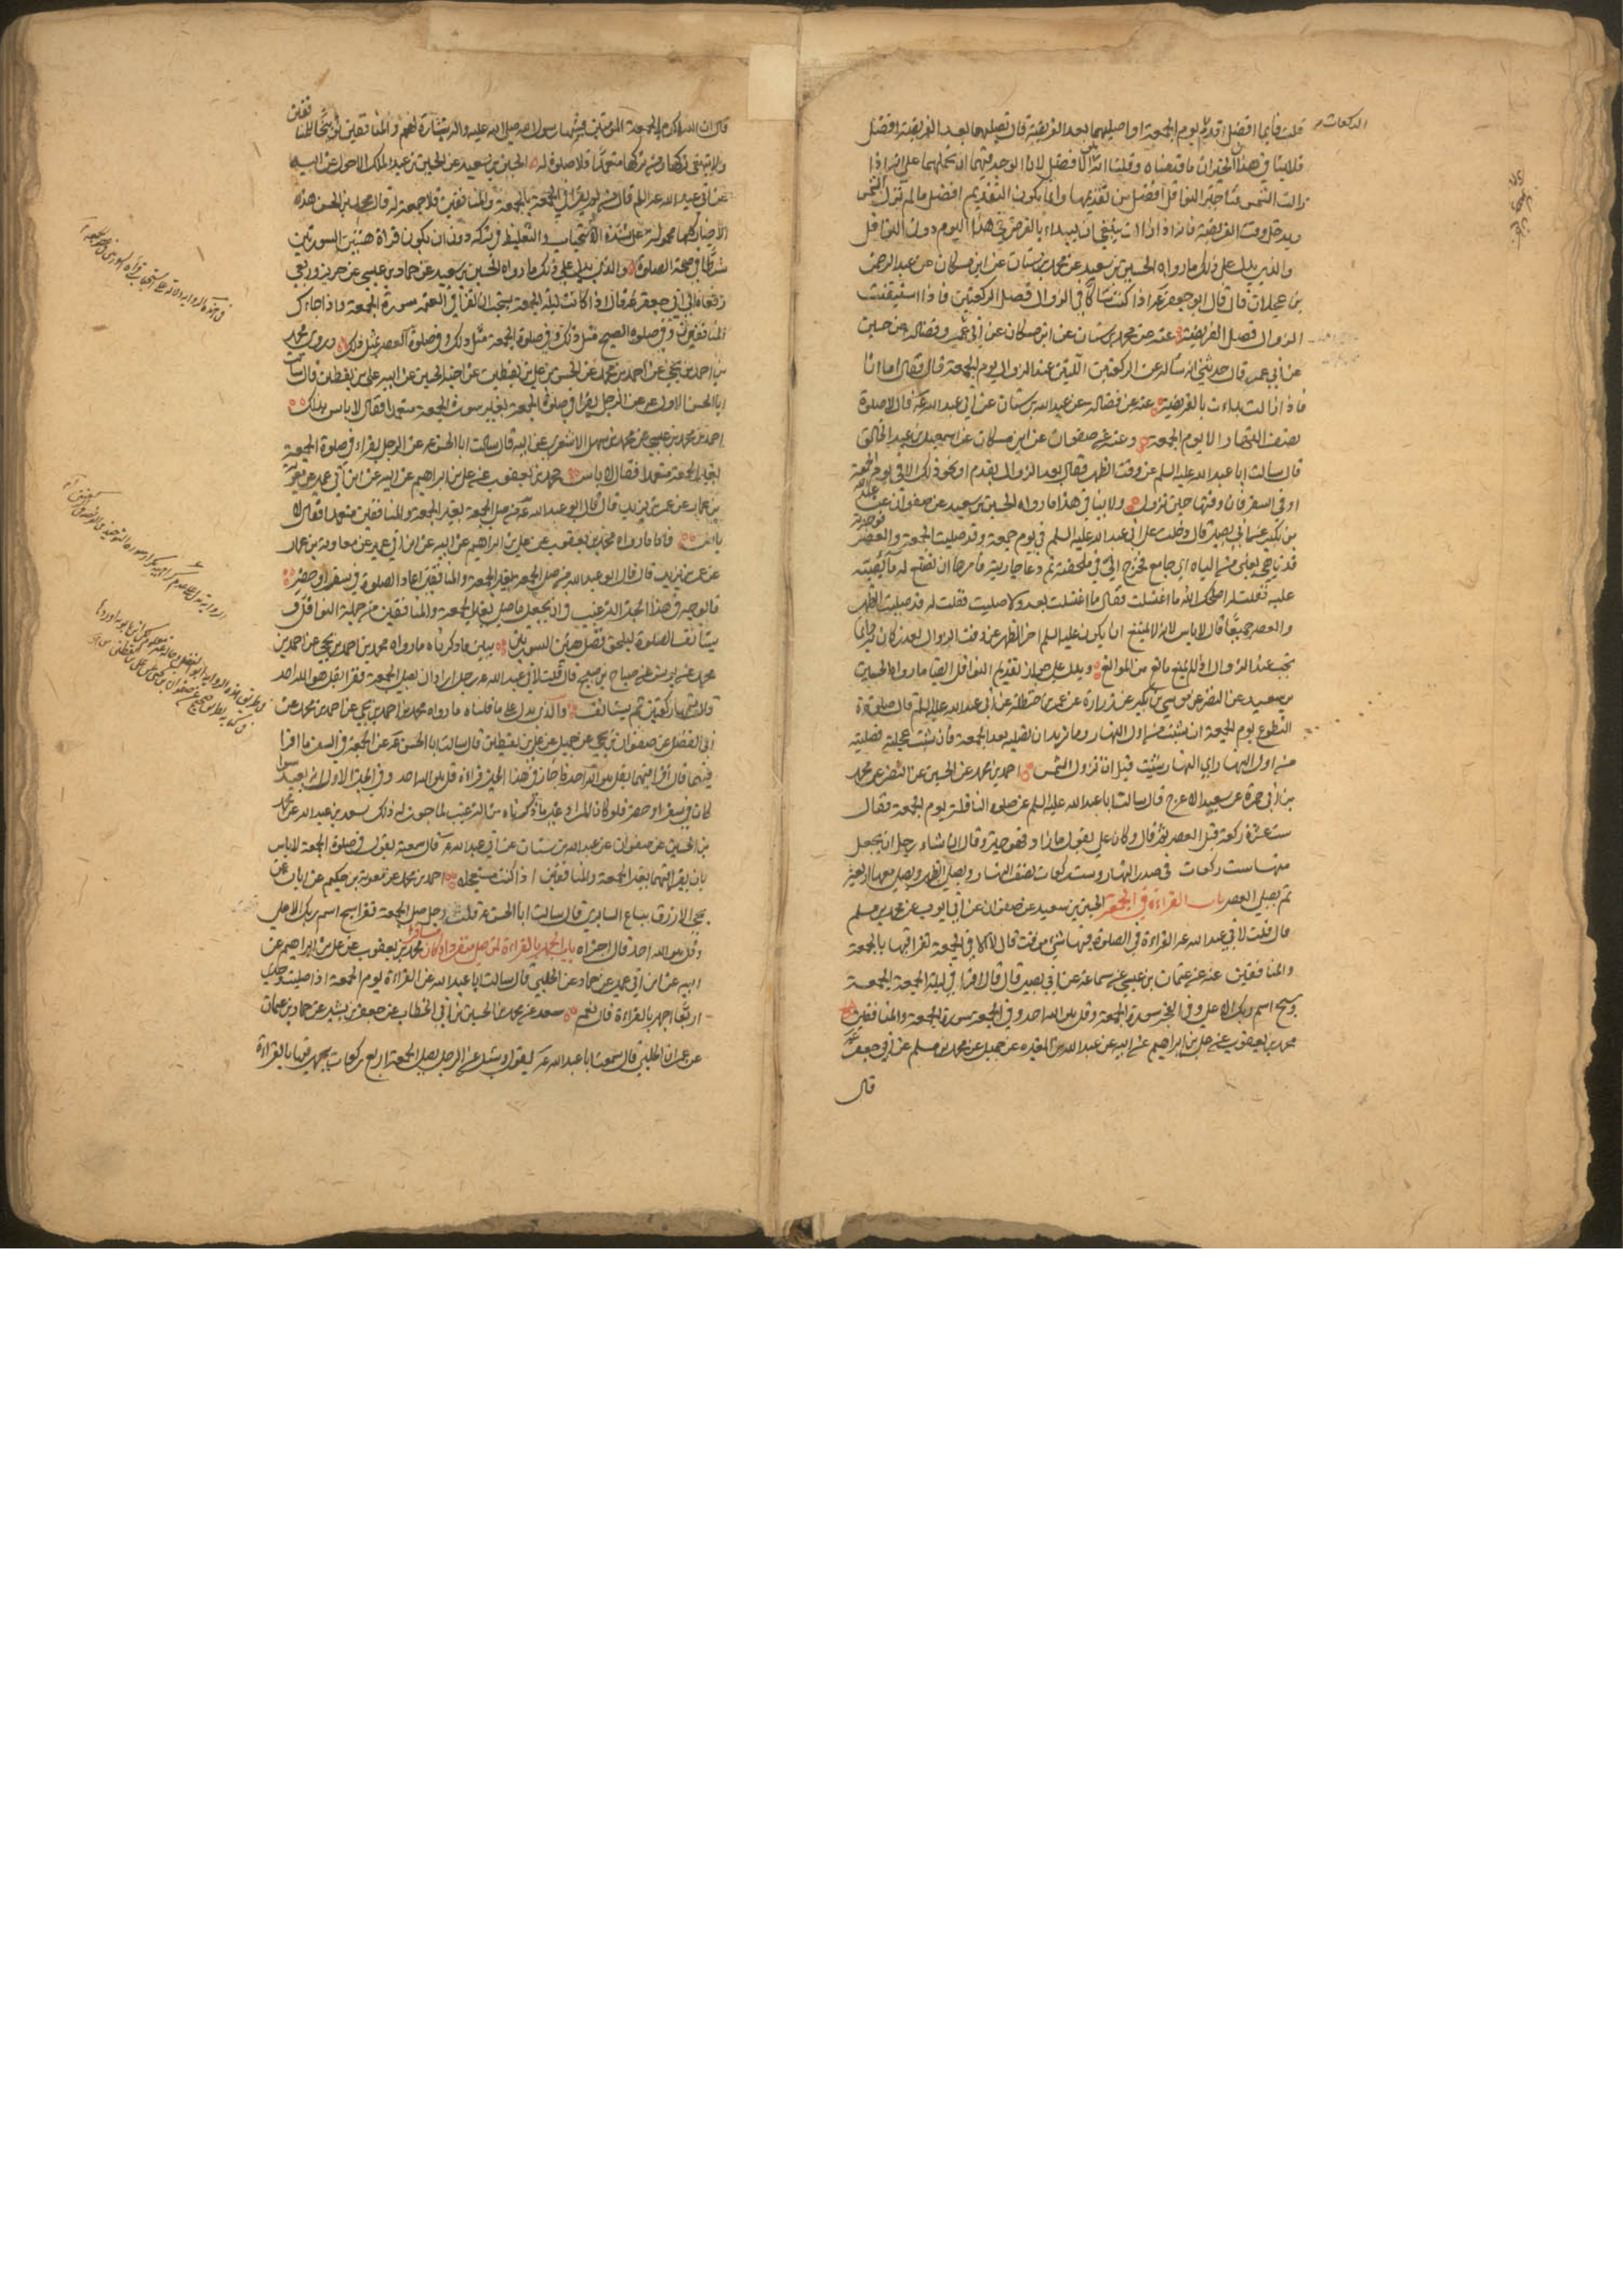 الركعات
قلت فأيما افضل اقدم يوم الجمعة او اصليهما بعد الفريضة قال تصليهما بعد الفريضة افضل
فلا ينافي هذان الخبران ما قدمناه وقلنا انه الافضل لان الوجه فيهما ان نحملهما على انه اذا
زالت الشمس فتاخير النوافل افضل من تقديمها وانما يكون التقديم افضل ما لم تزل الشمس
ويدخل وقت الفريضة فانه اذا زالت ينبغي ان يبداء بالفرض في هذا اليوم دون النوافل
والذي يدل على ذلك ما رواه الحسين بن سعيد عن محمد بن سنان عن ابن مسكان عن عبد الرحمن
بن عجلان قال قال ابو جعفر ع اذا كنت شاكا في الزوال فصل الركعتين فاذا استيقنت
الزوال فصل الفريضة عنه عن محمد بن سنان عن ابن مسكان عن ابن عمير وفضاله عن حسين
عن ابن عمير قال حدثني انه ساله عن الركعتين اللتين عند الزوال يوم الجمعة قال فقال اما انا
فاذا زالت بداءت بالفريضة عنه عن فضاله عن عبد الله بن سنان عن ابي عبد الله ع قال لا صلوة
نصف النهار الا يوم الجمعة وعنه عن صفوان عن ابن مسكان عن اسمعيل بن عبد الخالق
قال سالت ابا عبد الله عليه السلم عن وقت الظهر فقال بعد الزوال بقدم او نحو ذلك الا في يوم الجمعة
او في السفر فان وقتها حين تزول ولا ينافي هذا ما رواه الحسين بن سعيد عن صفوان عن عبد الله
بن بكير عن ابي بصير قال دخلت على ابي عبد الله عليه السلم في يوم جمعة وقد صليت الجمعة والعصر فوجدته
قد باهى يعني من الباه اي جامع فخرج الي في ملحفة ثم دعا جاريته فامرها ان تضع له ماء يصبه
عليه فقلت له اصلحك الله ما اغتسلت فقال ما اغتسلت بعد ولا صليت فقلت له قد صليت الظهر
والعصر جميعا قال لا باس لانه لا يمتنع ان يكون عليه السلم اخر الظهر عن وقت الزوال لعذر كان به وانما
تجب عند الزوال اذا لم يمنع مانع من الموانع ويدل على جواز تقديم النوافل ايضا ما رواه الحسين
بن سعيد عن النضر عن موسى بن بكير عن زرارة عن عمر بن حنظلة عن ابي عبد الله عليه السلم قال صلوة
التطوع يوم الجمعة ان شئت من اول النهار وما تريد ان تصليه بعد الجمعة فان شئت عجلته فصليته
من اول النهار اي النهار شئت قبل ان تزول الشمس احمد بن محمد عن الحسين عن النضر عن محمد
بن ابي حمزة عن سعيد الاعرج قال سالت ابا عبد الله عليه السلم عن صلوة النافلة يوم الجمعة فقال
ست عشرة ركعة قبل العصر ثم قال وكان علي يقول ما زاد فهو خير وقال ان شاء رجل ان يجعل
منها ست ركعات في صدر النهار وست ركعات نصف النهار ويصلي الظهر ويصلي معها اربعة
ثم يصلي العصر باب القراءة في الجمعة الحسين بن سعيد عن صفوان عن ابي ايوب عن محمد بن مسلم
قال قلت لابي عبد الله ع القراءة في الصلوة فيها شئ موقت قال لا الا في الجمعة تقرا فيها بالجمعة
والمنافقين عنه عن عثمان بن عيسى عن سماعة عن ابي بصير قال قال اقرا في ليلة الجمعة الجمعة
وسبح اسم ربك الاعلى وفي الفجر سورة الجمعة وقل هو الله احد وفي الجمعة سورة الجمعة والمنافقين
محمد بن يعقوب عن علي بن ابراهيم عن ابيه عن عبد الله بن المغيرة عن جميل عن محمد بن مسلم عن ابي جعفر ع
قال
قال ان الله اكرم بالجمعة المومنين فسنها رسول الله صلى الله عليه واله بشارة لهم والمنافقين توبيخا للمنافقين
ولا ينبغي تركها ومن تركها متعمدا فلا صلوة له الحسين بن سعيد عن الحسين بن عبد الملك الاحول عن ابيه
عن ابي عبد الله ع قال من لم يقرا في الجمعة بالجمعة والمنافقين فلا جمعة له قال محمد بن الحسن هذه
الاخبار كلها محمولة على شدة الاستحباب والتغليظ في تركه دون ان يكون قراة هتين السورتين
شرطا في صحة الصلوة والذي يدل على ذلك ما رواه الحسين بن سعيد عن حماد بن عيسى عن حريز وربعي
رفعاه الى ابي جعفر ع قال اذا كانت ليلة الجمعة يستحب ان يقرا في العتمة سورة الجمعة واذا جاءك
المنافقون وفي صلوة الصبح مثل ذلك وفي صلوة الجمعة مثل ذلك وفي صلوة العصر مثل ذلك وروى محمد
بن احمد بن يحيى عن احمد بن محمد عن الحسن بن علي بن يقطين عن اخيه الحسين عن ابيه علي بن يقطين قال سالت
ابا الحسن الاول ع عن الرجل يقرا في صلوة الجمعة بغير سورة الجمعة متعمدا فقال لا باس بذلك
احمد بن محمد بن عيسى عن محمد بن سهل الاشعري عن ابيه قال سالت ابا الحسن ع عن الرجل يقراء في صلوة الجمعة
بغير الجمعة متعمدا فقال لا باس محمد بن يعقوب عن علي بن ابراهيم عن ابيه عن ابن ابي عمير عن معوية
بن عمار عن عمر بن يزيد قال قال ابو عبد الله ع من صلى الجمعة بغير الجمعة والمنافقين متعمدا فقال لا
باس فاما ما رواه محمد بن يعقوب عن علي بن ابراهيم عن ابيه عن ابن ابي عمير عن معاوية بن عمار
عن عمر بن يزيد قال قال ابو عبد الله من صلى الجمعة بغير الجمعة والمنافقين اعاد الصلوة في سفر او حضر
فالوجه في هذا الخبر الترغيب وان يجعل ما صلى بغير الجمعة والمنافقين من جملة النوافل و
يستانف الصلوة ليلحق فضل هتين السورتين يبين ما ذكرناه ما رواه محمد بن احمد بن يحيى عن احمد بن
محمد عن يونس عن صباح بن صبيح قال قلت لابي عبد الله ع رجل اراد ان يصلي الجمعة فقرا بقل هو الله احد
قال يتمها ركعتين ثم يستانف والذي يدل على ما قلناه ما رواه محمد بن احمد بن يحيى عن احمد بن محمد عن
ابي الفضل عن صفوان بن يحيى عن جميل عن علي بن يقطين قال سالت ابا الحسن ع عن الجمعة في السفر ما اقرا
فيهما قال اقرا فيهما بقل هو الله احد فاجاز في هذا الخبر قراءة قل هو الله احد وفي الخبر الاول انه يعيد سواء
كان في سفر او حضر فلو كان المراد غير ما ذكرناه من الترغيب لما جوز له ذلك سعد بن عبد الله عن محمد
بن الحسين عن صفوان عن عبد الله بن سنان عن ابي عبد الله ع قال سمعته يقول في صلوة الجمعة لا باس
بان يقرا فيهما بغير الجمعة والمنافقين اذا كنت مستعجلا احمد بن محمد عن معوية بن حكيم عن ابان عن
يحيى الازرق بياع السابري قال سالت ابا الحسن ع قلت رجل صلى الجمعة فقرا سبح اسم ربك الاعلى
وقل هو الله احد قال اجزاه باب الجهر بالقراءة لمن صلى منفردا او كان مسافرا محمد بن يعقوب عن علي بن ابراهيم عن
ابيه عن ابن ابي عمير عن حماد عن الحلبي قال سالت ابا عبد الله عن القراءة يوم الجمعة اذا صليت وحدي
اربعا اجهر بالقراءة قال نعم سعد عن محمد بن الحسين بن ابي الخطاب عن جعفر بن بشير عن حماد بن عثمان
عن عمران الحلبي قال سمعت ابا عبد الله ع يقول وسئل عن الرجل يصلي الجمعة اربع ركعات يجهر فيها بالقراءة